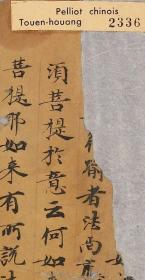 Pelliot chinois
Touen-houang 2336
喻者法尚
須菩提於意云何如
菩提耶如来有所說